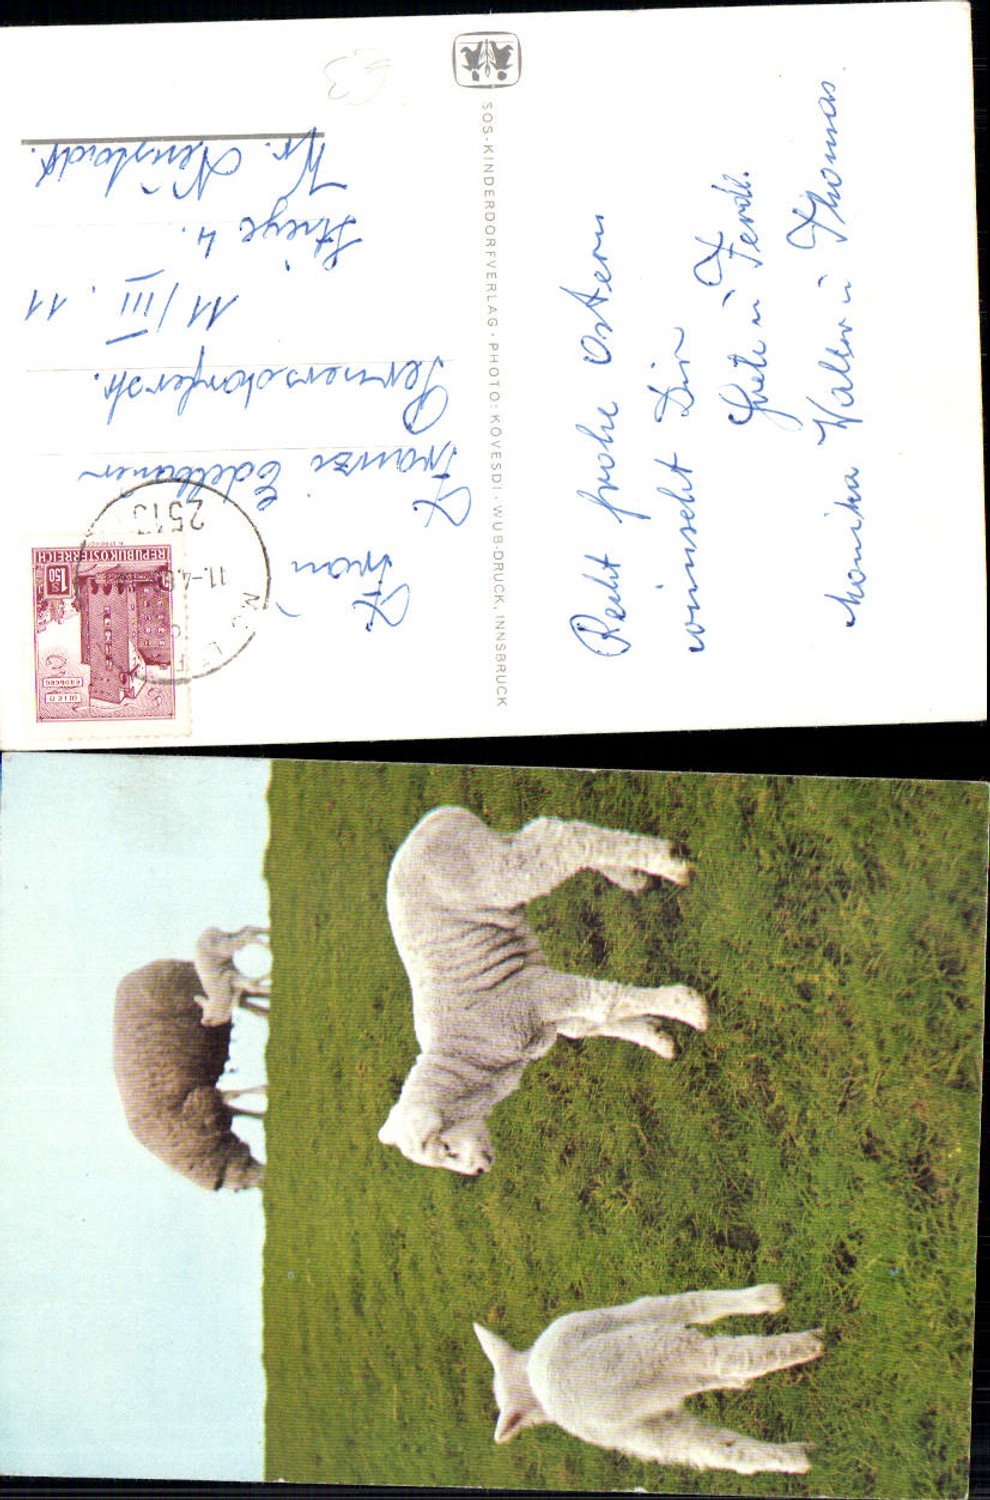 Recht frohe Ostern
wünscht Dir
Grete u Ferdl.
Monika Walter u Thomas
SOS-KINDERDORFVERLAG · PHOTO: KÖVESDI · WUB-DRUCK, INNSBRUCK
REPUBLIK ÖSTERREICH
S 1.50
WIEN
ERDBERG
2513
11.-4.
Frau
Franzi Edelbauer
11/III. 11
Stiege 4.
Wr. Neustadt.